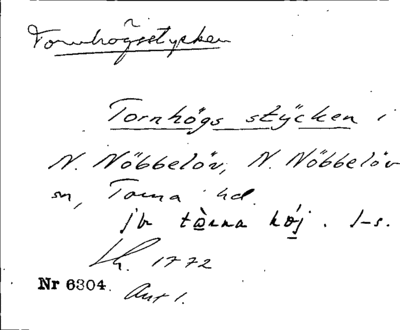 Tornhögsstycken
Tornhögs stÿcken i
N. Nöbbelöv, N. Nöbbelöv
sn, Torna hd.
jb tànna hój. l-s.
Lh. 1772
Nr 6304. Akt 1.